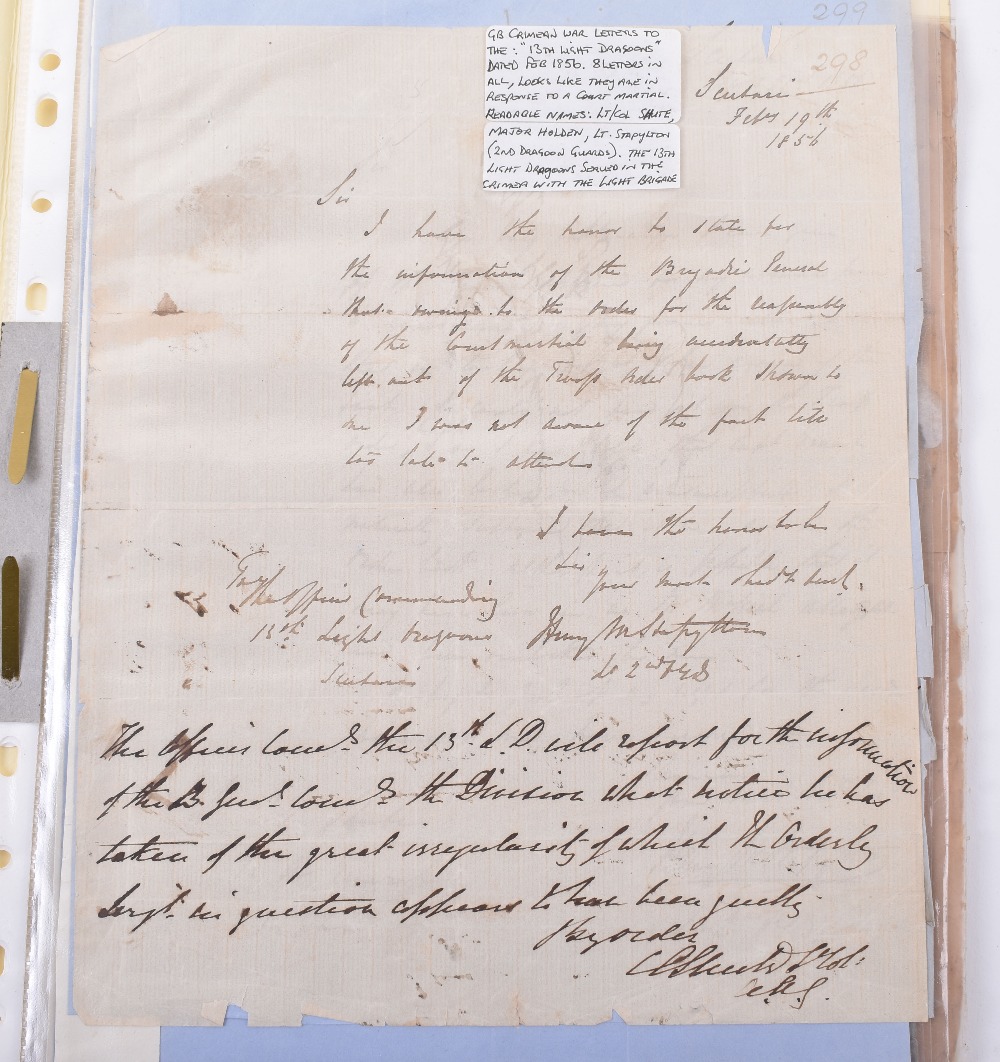 299
298
GB CRIMEAN WAR LETTERS TO
THE: "13TH LIGHT DRAGOONS"
DATED FEB 1856. 8 LETTERS IN
ALL, LOOKS LIKE THEY ARE IN
RESPONSE TO A COURT MARTIAL.
READABLE NAMES: LT/COL SHUTE,
MAJOR HOLDEN, LT. STAPYLTON
(2ND DRAGOON GUARDS). THE 13TH
LIGHT DRAGOONS SERVED IN THE
CRIMEA WITH THE LIGHT BRIGADE
Scutari
Feby 19th
1856
Sir
I have the honor to state for
the information of the Brigadier General
that owing to the order for the reassembly
of the Court martial being accidentally
left out of the Troops order book shown to
me I was not aware of the fact till
too late to attend
I have the honor to be
Sir
Your most obedt servt.
Henry M Stapylton
Lt 2nd DGds
To
The Officer Commanding
13th Light Dragoons
Scutari
The Officer Comdg the 13th L.D. will report for the information
of the B. Genl. Comdg the Division what notice he has
taken of the great irregularity of which the Orderly
Sergt. in question appears to have been guilty
By order
Shute Lt Col:
A.A.G.